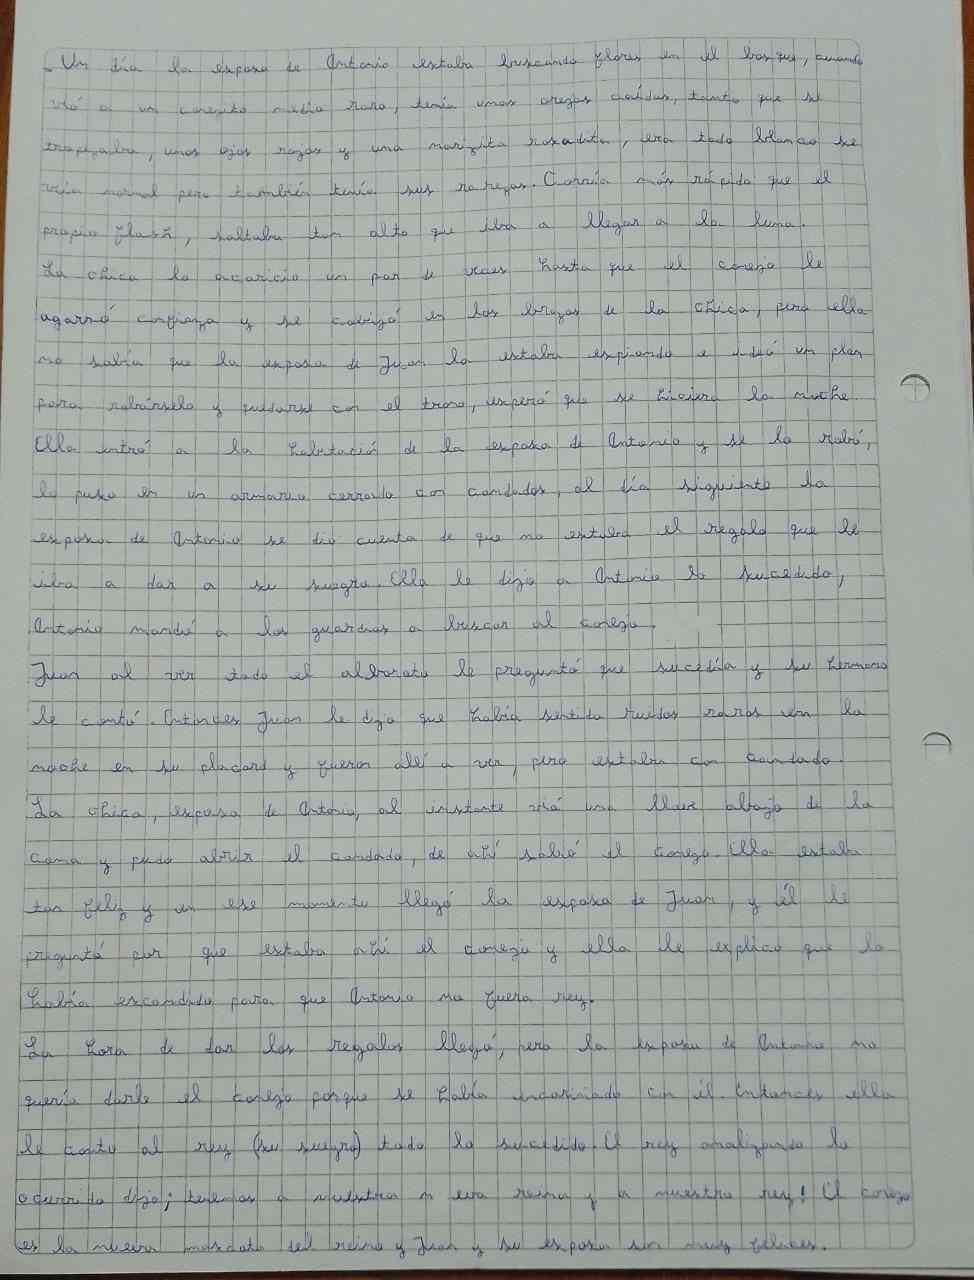 Un día la esposa de Antonio estaba buscando flores en el bosque, cuando
vió a un conejito medio raro, tenía unas orejas caídas, tanto que se
tropezaba, unos ojos rojos y una narizita rosadita, era todo blanco se
veía normal pero también tenía sus rarezas. Corría más rápido que el
propio flash, saltaba tan alto que iba a llegar a la luna.
La chica lo acaricio un par de veces hasta que el conejo le
agarró confianza y se cobijó en los brazos de la chica, pero ella
no sabía que la esposa de Juan la estaba espiando e ideó un plan
para robárselo y quedarse con el trono, esperó que se hiciera la noche.
Ella entró a la habitació de la esposa de Antonio y se lo robó,
lo puso en un armario cerrado con candados, al día siguiente la
esposa de Antonio se dió cuenta de que no estaba el regalo que le
iba a dar a su suegro. Ella le dijo a Antonio lo sucedido,
Antonio mandó a los guardias a buscar al conejo.
Juan al ver todo el alboroto le preguntó que sucedía y su hermano
le contó. Entonces Juan le dijo que había sentido ruidos raros en la
noche en su placard y fueron allí a ver, pero estaba con candado.
La chica, esposa de Antonio, al instante vió una llave abajo de la
cama y pudo abrir el candado, de ahí salió el conejo. Ella estaba
tan feliz y en ese momento llegó la esposa de Juan, y él le
preguntó por que estaba ahí el conejo y ella le explicó que lo
había escondido para que Antonio no fuera rey.
La hora de dar los regalos llegó, pero la esposa de Antonio no
quería darle el conejo porque se había encariñado con él. Entonces ella
le conto al rey (su suegro) todo lo sucedido. El rey analizando lo
ocurrido dijo; tenemos a nuestra n eva reina y a nuestro rey! El conejo
es la nueva mascota del reino y Juan y su esposa son muy felices.